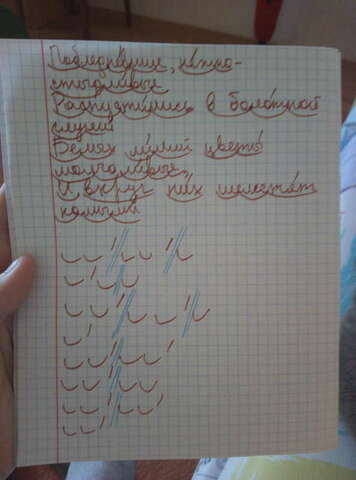 Побледневшие, не́жно-
стыдливые
Распустились в боло́тной
глуши
Белых лилий цветы́
молчаливые,
И вкруг ни́х шелестя́т
камыши